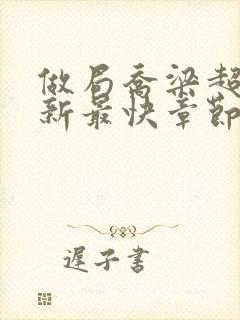 做局乔梁超
新最快章節
遲子書